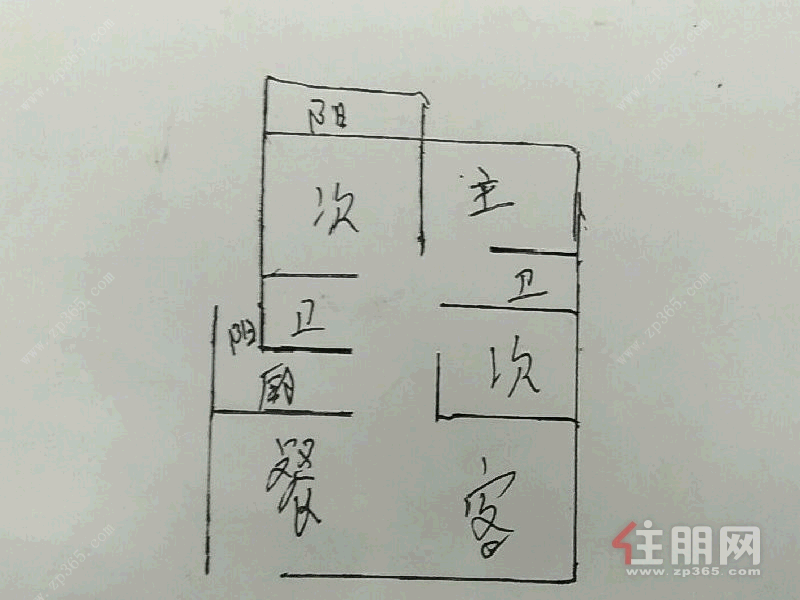 阳
次
主
卫
卫
阳
次
厨
餐
客
住朋网
www.zp365.com